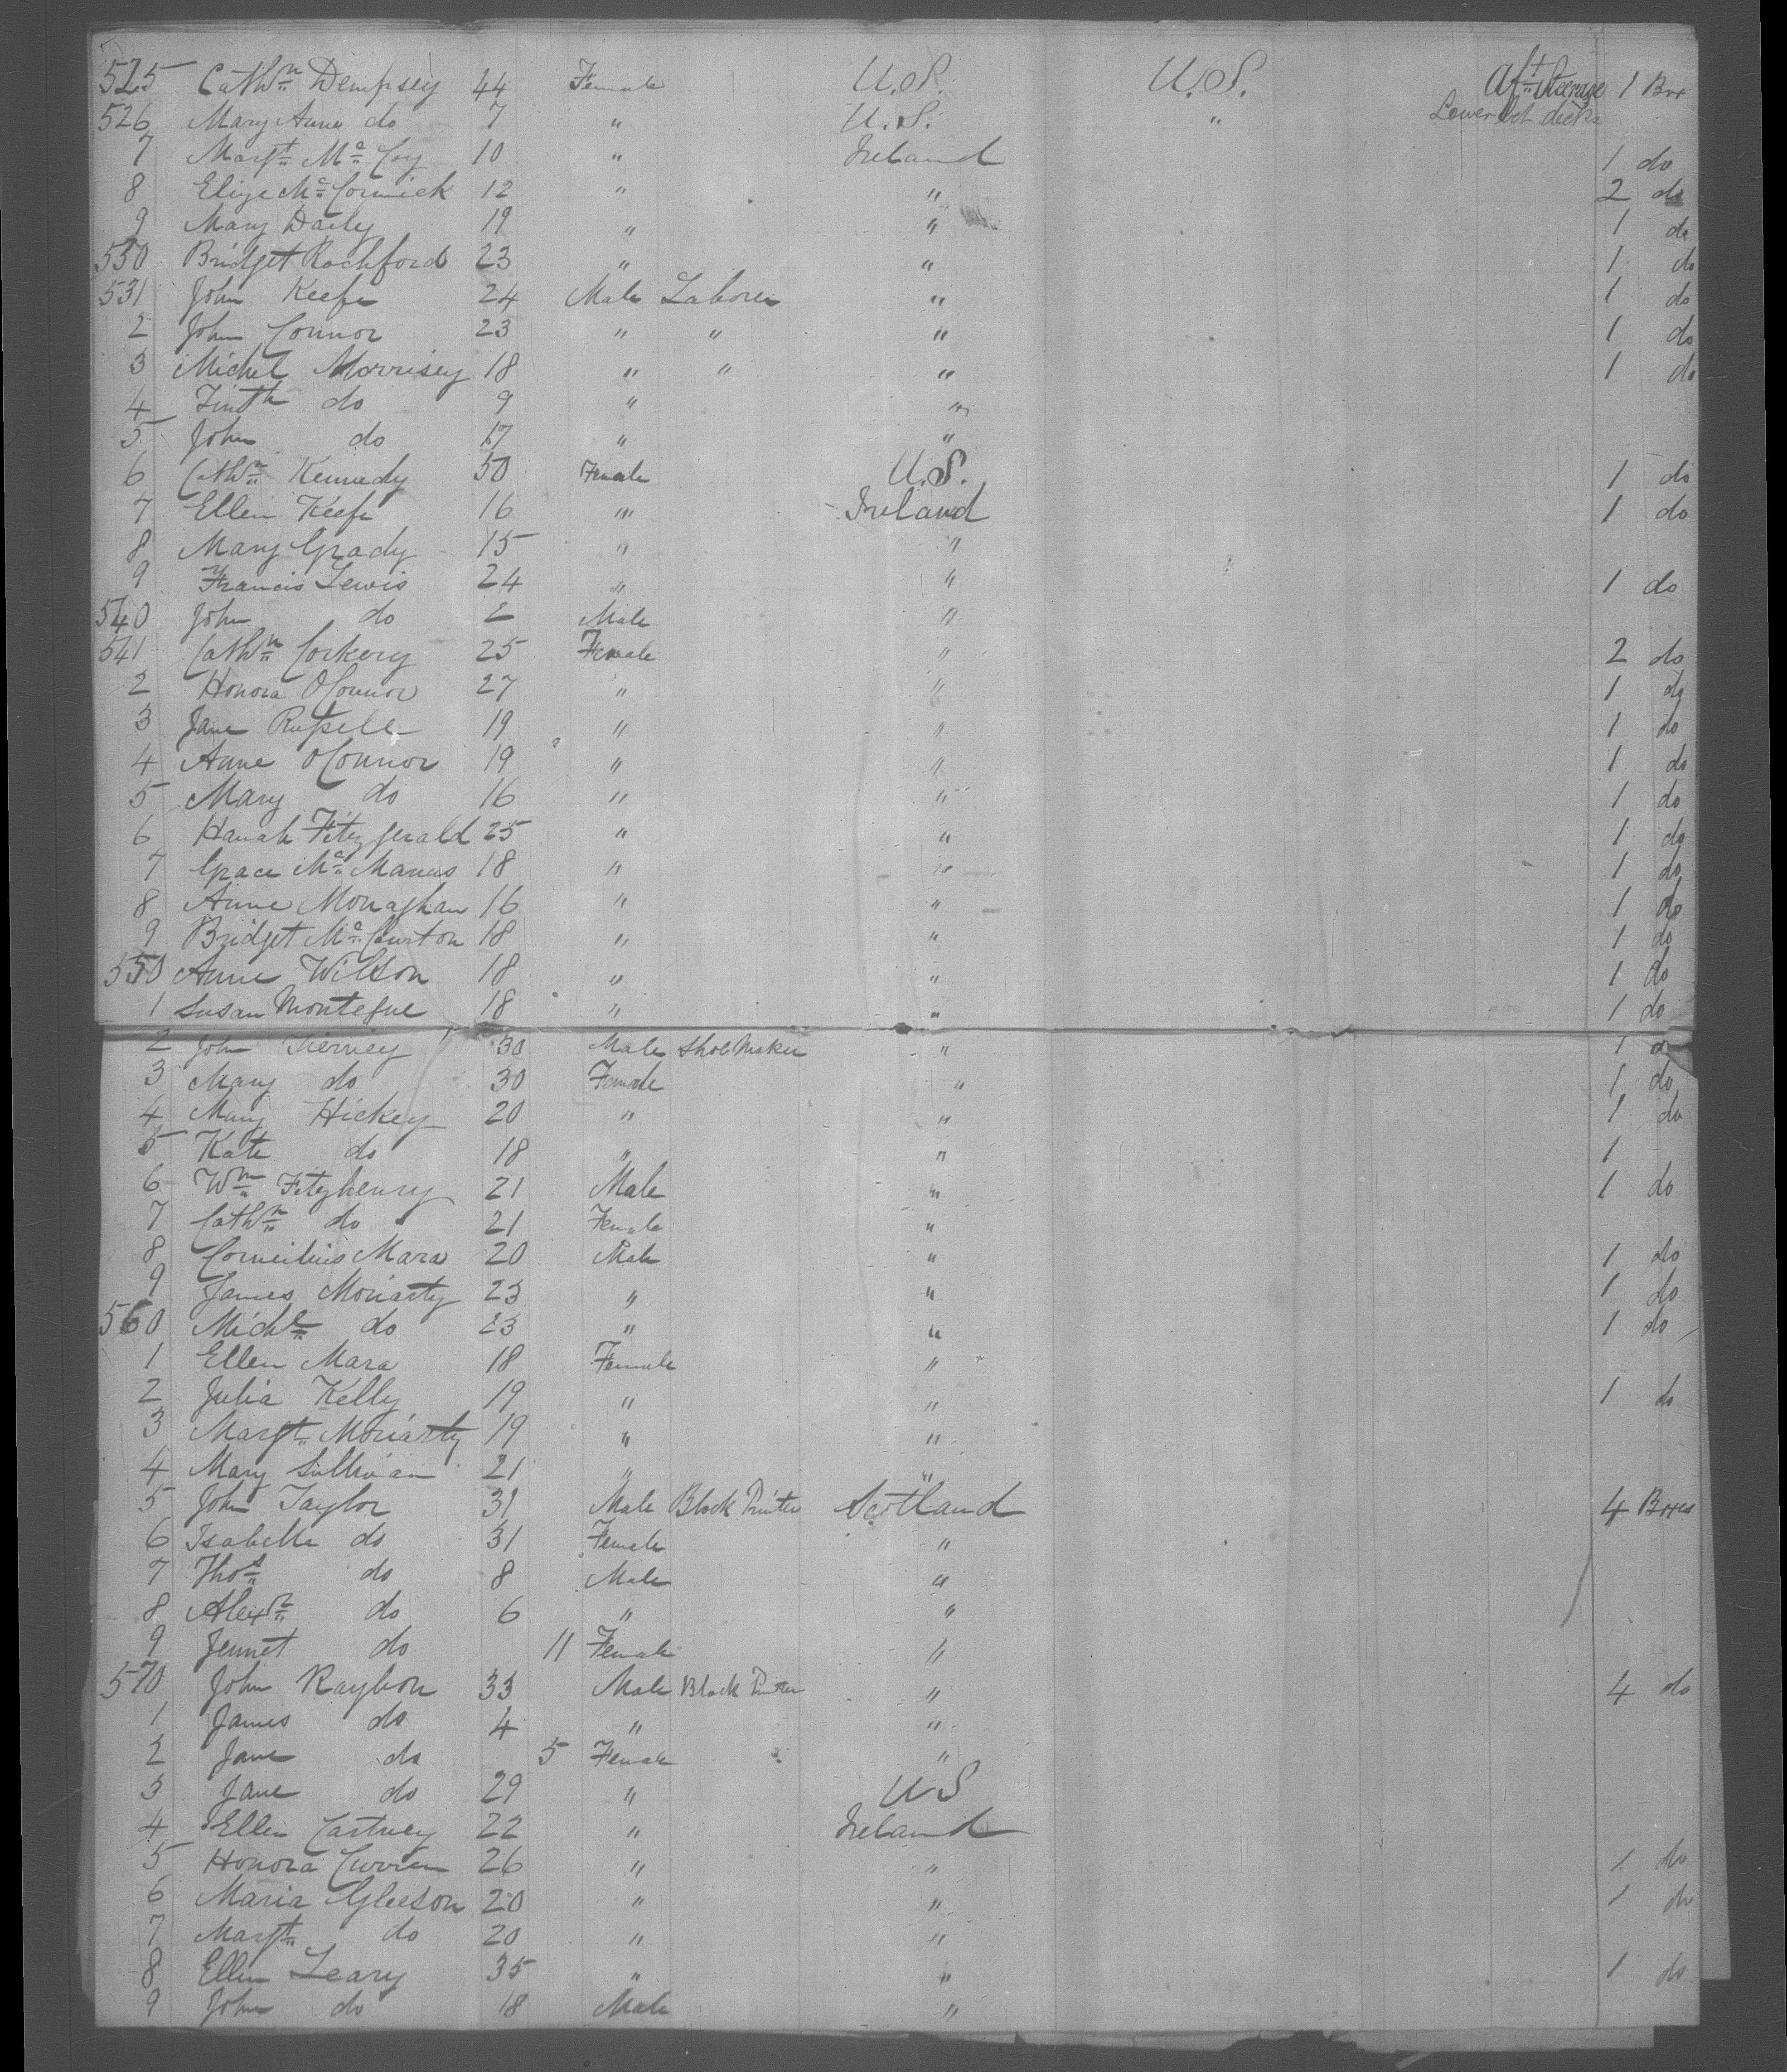 525 Cathn Dempsey 44 Female U.S. U.S. Aft Steerage 1 Box
526 Mary Anne do 7 " U.S. " Lower bet decks
7 Margt Mc Coy 10 " Ireland 1 do
8 Eliza Mc Cormick 12 " " 2 do
9 Mary Daily 19 " " 1 do
530 Bridget Rochford 23 " " 1 do
531 John Keefe 24 Male Laborer " 1 do
2 John Connor 23 " " " 1 do
3 Michel Morrisey 18 " " " 1 do
4 Timth do 9 " "
5 John do 17 " "
6 Cathn Kennedy 50 Female U.S. 1 do
7 Ellen Keefe 16 " Ireland 1 do
8 Mary Grady 15 " "
9 Francis Lewis 24 " " 1 do
540 John do 2 Male "
541 Cathn Corkery 25 Female " 2 do
2 Honora OConnor 27 " " 1 do
3 Jane Russell 19 " " 1 do
4 Anne OConnor 19 " " 1 do
5 Mary do 16 " " 1 do
6 Hanah Fitzgerald 25 " " 1 do
7 Grace Mc Manus 18 " " 1 do
8 Anne Monaghan 16 " " 1 do
9 Bridget Mc Curton 18 " " 1 do
550 Anne Wilson 18 " " 1 do
1 Susan Montegue 18 " " 1 do
2 John Tierney 30 Male Shoe Maker " 1 d
3 Mary do 30 Female " 1 do
4 Mary Hickey 20 " " 1 do
5 Kate do 18 " " 1
6 Wm Fitzhenry 21 Male " 1 do
7 Cathn do 21 Female "
8 Cornelius Mara 20 Male " 1 do
9 James Moriarty 23 " " 1 do
560 Michl do 23 " " 1 do
1 Ellen Mara 18 Female "
2 Julia Kelly 19 " " 1 do
3 Margt Moriarty 19 " "
4 Mary Sullivan 21 " "
5 John Taylor 31 Male Block Printer Scotland 4 Boxes
6 Isabella do 31 Female "
7 Thos do 8 Male "
8 Alexr do 6 " "
9 Jennet do 11 Female "
570 John Raybon 33 Male Block Printer " 4 do
1 James do 4 " "
2 Jane do 5 Female "
3 Jane do 29 " U S
4 Ellen Cartney 22 " Ireland
5 Honora Curren 26 " " 1 do
6 Maria Gleeson 20 " " 1 do
7 Margt do 20 " "
8 Ellen Leary 35 " " 1 do
9 John do 18 Male "